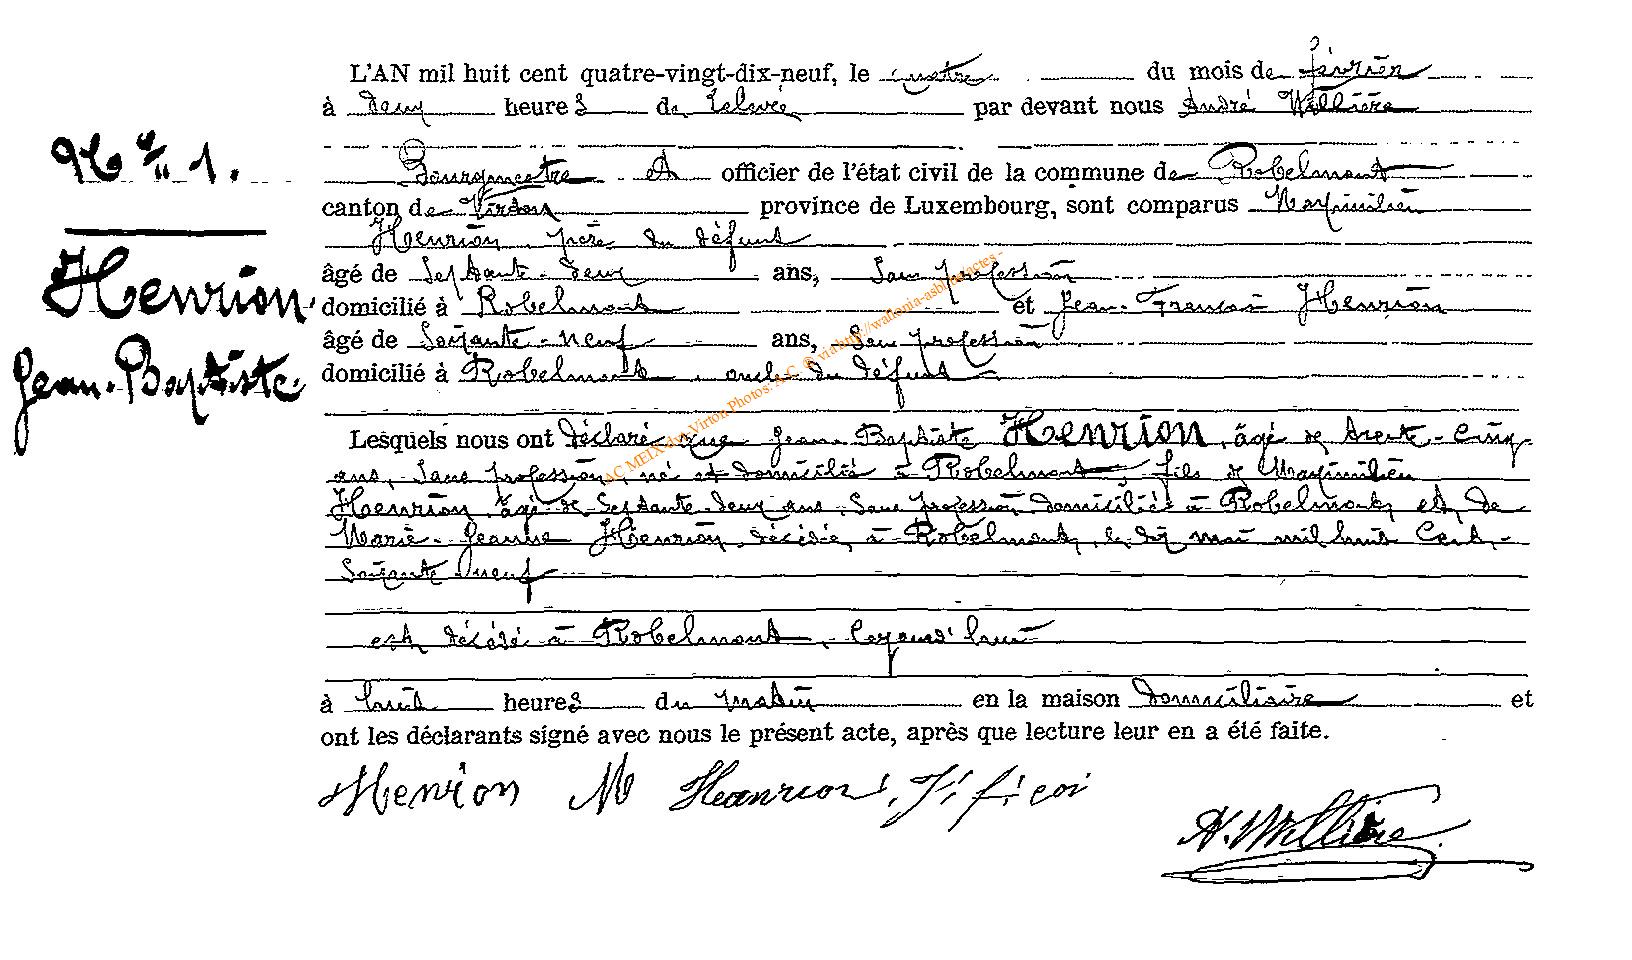 L'AN mil huit cent quatre-vingt-dix-neuf, le quatre du mois de février
à deux heures de relevée par devant nous André Willière
N° 1.
Bourgmestre et officier de l'état civil de la commune de Robelmont
canton de Virton province de Luxembourg, sont comparus Maximilien
Henrion, père du défunt
âgé de Septante-deux ans, Sans profession
Henrion
domicilié à Robelmont et Jean-François Henrion
âgé de Soixante-neuf ans, Sans profession
Jean-Baptiste
domicilié à Robelmont, oncle du défunt
Lesquels nous ont déclaré que Jean-Baptiste Henrion, âgé de trente-cinq
ans, Sans profession, né et domicilié à Robelmont, fils de Maximilien
Henrion, âgé de Septante-deux ans, Sans profession domicilié à Robelmont, et de
Marie-Jeanne Henrion, décédée, à Robelmont, le dix mai mil huit Cent-
Soixante neuf
est, décédé à Robelmont, cejourd'hui
à huit heures du matin en la maison domiciliaire et
ont les déclarants signé avec nous le présent acte, après que lecture leur en a été faite.
Henrion M Henrion, J.
A. Willière